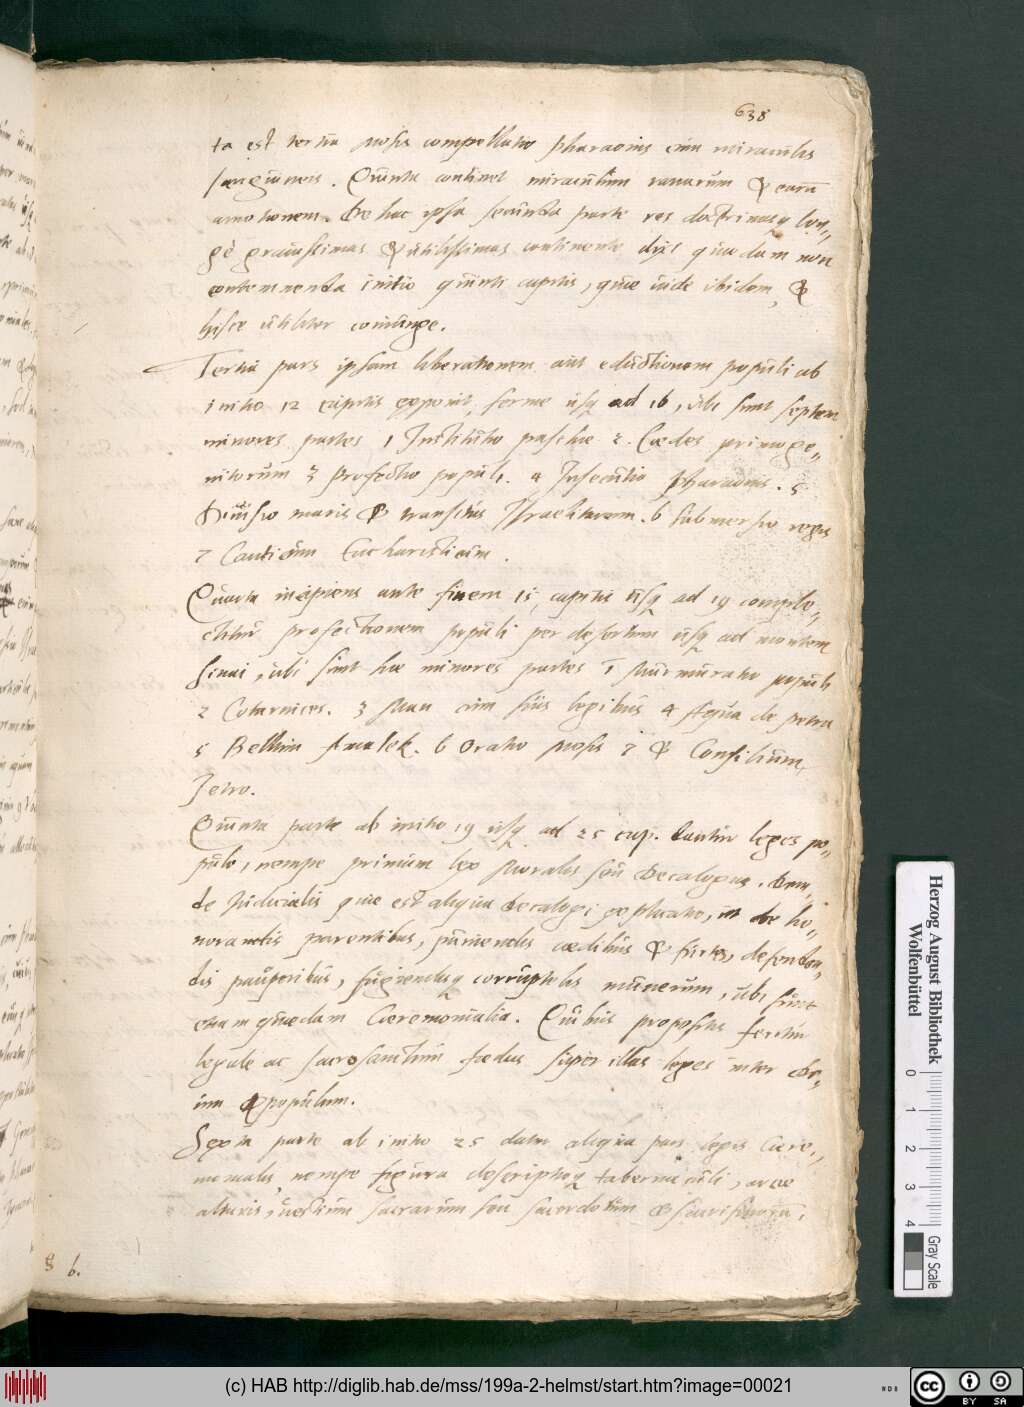 638
ta est tertia Mosis compellatio Pharaonis cum miraculis
sanguineis. Quinta continet miraculum ranarum & earū
amotionem. De hac ipsa secunda parte res doctrinasq́ lon„
gè gravissimas & utilissimas continente dixi quaedam non
contemnenda initio quinti capitis, quae vide ibidem, &
hisce utiliter coniunge.
Tertia pars ipsam liberationem aut eductionem populi ab
initio 12 capitis exponit, ferme usq́ ad 16, ubi sunt septem
minores partes 1 Institutio paschae 2. Caedes primoge„
nitorum 3 Profectio populi. 4 Insecutio Pharaonis. 5
Divisio maris & transitus Israelitarum. 6 Submersio regis
7 Canticum Eucharisticum.
Quarta incipiens ante finem 15, capitis usq́ ad 19 comple„
ctitur profectionem populi per desertum usq́ ad montem
Sinai, ubi sunt hae minores partes 1 Murmuratio populi
2 Coturnices. 3 Man cum suis legibus 4 Aqua de petra
5 Bellum Amalek. 6 Oratio Mosis 7 & Consilium
Jetro.
Quinta parte ab initio 19 usq́ ad 25 cap. dantur leges po„
pulo, nempe primum lex Moralis seu Decalogus. Dein„
de Judicialis quae est aliqua Decalogi explicatio, ut de ho„
norandis parentibus, puniendis caedibus & furtis, defenden„
dis pauperibus, fugiendisq́ corruptelis munerum, ubi sunt
etiam quaedam Caeremonialia. Quibus propositis feritur
legale ac sacrosanctum foedus super illas leges inter De„
um & populum.
Sexta parte ab initio 25 datur aliqua pars legis Caere„
monialis, nempe figura descriptioq́ tabernaculi, arcae
altaris, vestium sacrarum seu sacerdotum & sacrificiorū,
8 b.
Herzog August Bibliothek
Wolfenbüttel
0 1 2 3 4
Gray Scale
(c) HAB http://diglib.hab.de/mss/199a-2-helmst/start.htm?image=00021
cc BY SA